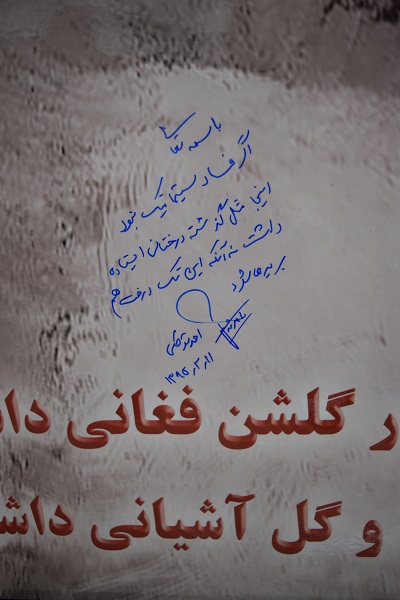 باسمه تعالی
اگر فساد سیستماتیک نبود
اینجا مثل گذشته درختان ایستاده
داشت نه آنکه این تک درخت هم
بریده شود
احمد
ر گلشن فغانی دا
و گل آشیانی داش